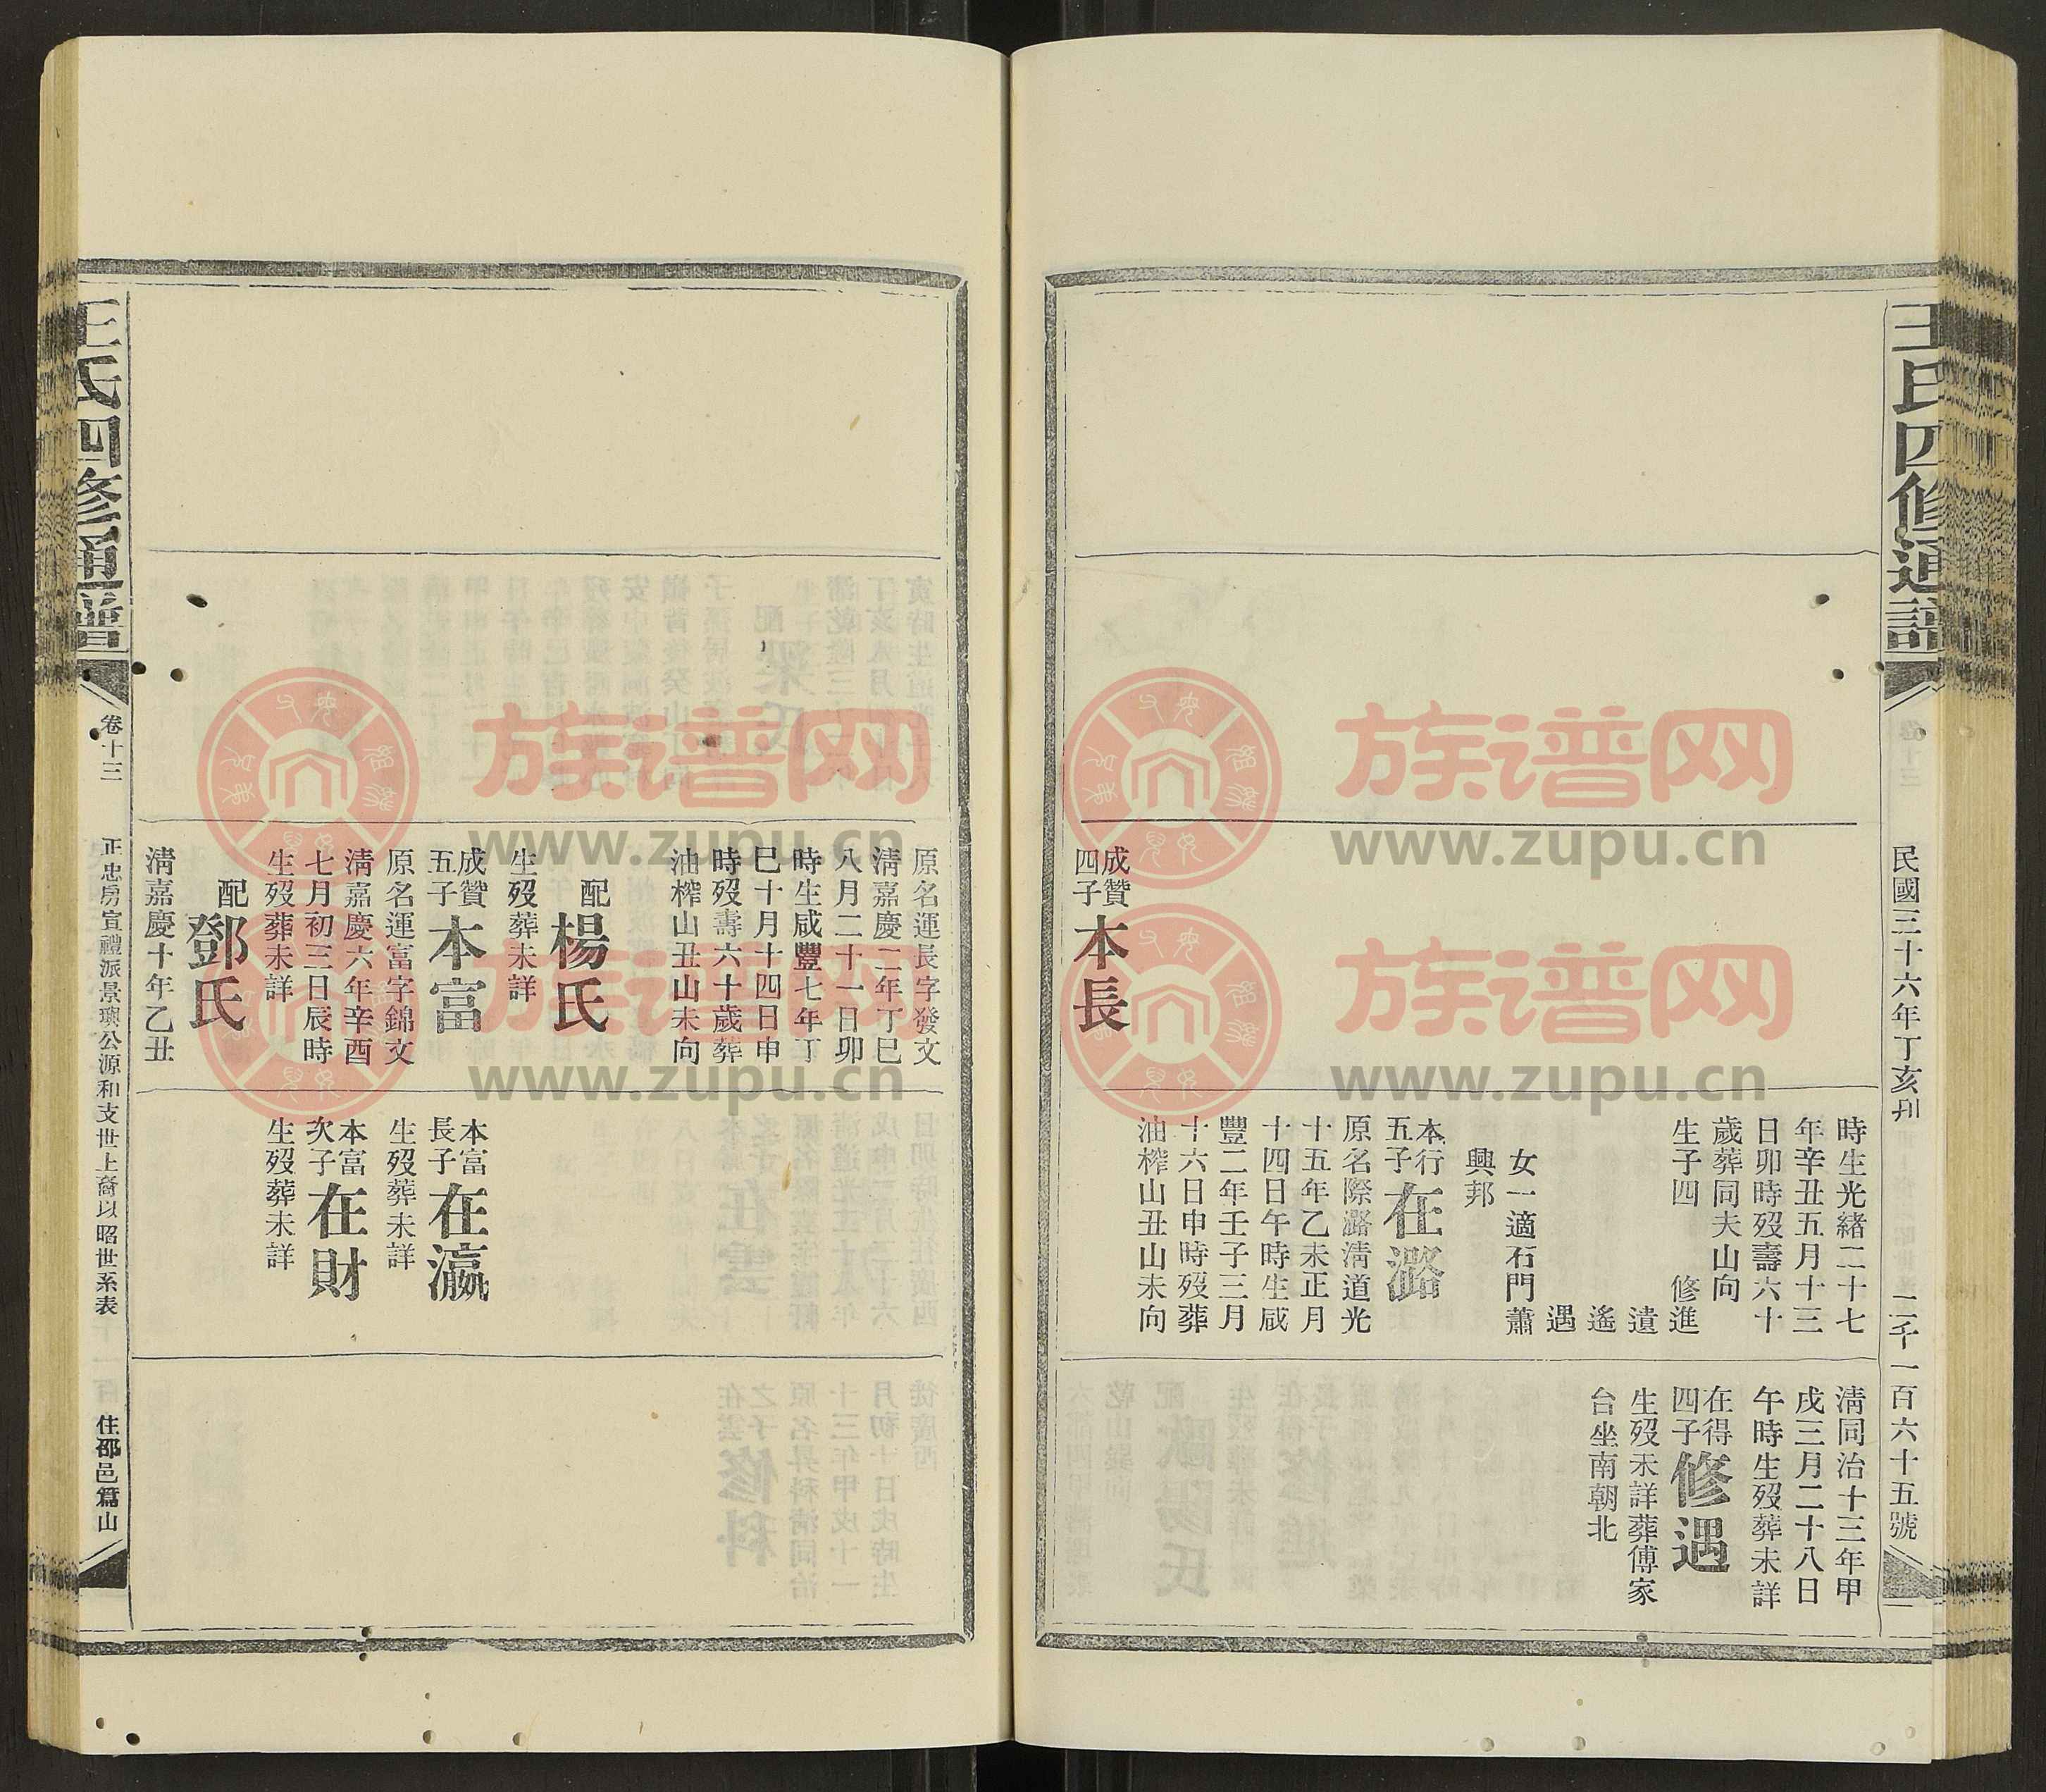 王氏四修通譜
民國三十六年丁亥刋
二千一百六十五號
成贊
四子
本長
時生光緒二十七
年辛丑五月十三
日卯時歿壽六十
歲葬同夫山向
生子四 修進
遺
遙
遇
女一適石門蕭
興邦
本行
五子
在潞
原名際潞清道光
十五年乙未正月
十四日午時生咸
豐二年壬子三月
十六日申時歿葬
油榨山丑山未向
清同治十三年甲
戌三月二十八日
午時生歿葬未詳
在得
四子
修遇
生歿未詳葬傅家
台坐南朝北
原名運長字發文
清嘉慶二年丁巳
八月二十一日卯
時生咸豐七年丁
巳十月十四日申
時歿壽六十歲葬
油榨山丑山未向
配
楊氏
生歿葬未詳
成贊
五子
本富
原名運富字錦文
清嘉慶六年辛酉
七月初三日辰時
生歿葬未詳
配
鄧氏
清嘉慶十年乙丑
本富
長子
在瀛
生歿葬未詳
本富
次子
在財
生歿葬未詳
王氏四修通譜
卷十三
正忠房宣禮派景璵公源和支世上裔以昭世系表
住邵邑篙山
族谱网
www.zupu.cn
族谱网
www.zupu.cn
族谱网
www.zupu.cn
族谱网
www.zupu.cn